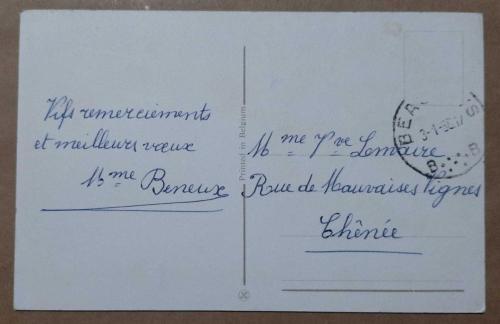 Vifs remerciements
et meilleurs vœux
Mme Beneux
Printed in Belgium
Mme Vve Lemaire
Rue de Mauvaises Vignes
Chênée
3-1-
B B